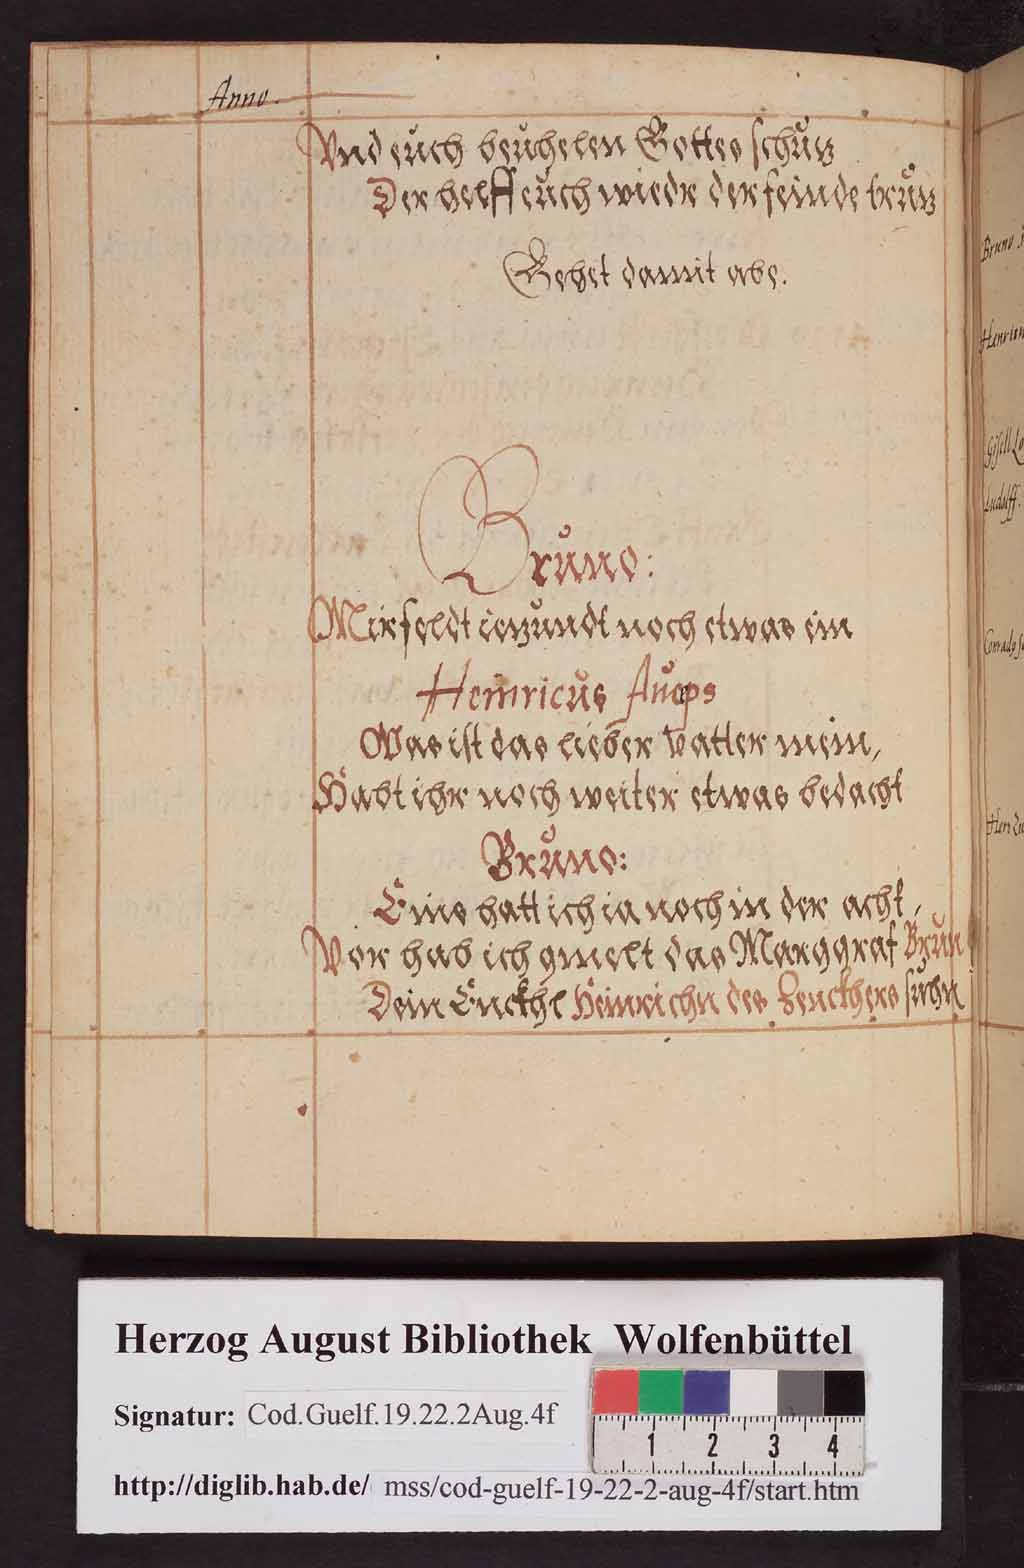 Anno.
Vnd euch beuhelen Gottes schutz
Der helff euch wiedr der feinde trutz
Gehet damit abe.
Bruno:
Mir feldt ietzundt noch etwas ein
Heinricus Auceps
Was ist das lieber vatter mein,
Habt ihr noch weiter etwas bedacht
Bruno:
Eins hatt ich ia noch in der acht,
Vor hab ich gmelt das Marggraf Brun
Dein Enckhl Heinrichn des Zenckhers suhn
Bruno
Gisell
Ludolff.
Herzog August Bibliothek Wolfenbüttel
Signatur: Cod.Guelf.19.22.2Aug.4f
1 2 3 4
http://diglib.hab.de/ mss/cod-guelf-19-22-2-aug-4f/start.htm